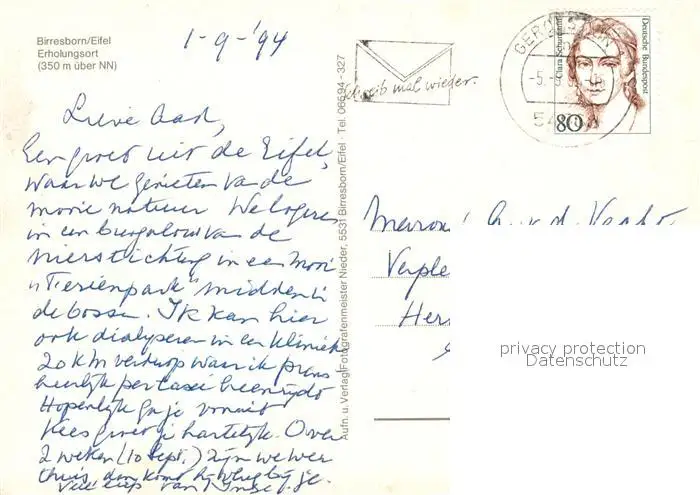 Birresborn/Eifel
Erholungsort
(350 m über NN)
1-9-'94
Lieve Aad,
Een groet uit de Eifel,
waar we genieten va de
mooie natuur We logeren
in een bungalow van de
Nierstichting in een mooi
"Ferienpark" midden i
de bossen. Ik kan hier
ook dialyseren in een Kliniek
20 km verderop waar ik
heerlijk per taxi heenrijd
Hopenlijk ga je vooruit
Kees groet je hartelijk. Over
2 weken (10 Sept.) zijn we weer
thuis, dan komt hij vlug bij je.
Veel liefs van
Aufn. u. Verlag Fotografenmeister Nieder, 5531 Birresborn/Eifel · Tel. 06594 - 327
Schreib mal wieder.
GEROLSTEIN
-5.-9.
54
Clara Schumann
Deutsche Bundespost
80
Mevrouw
Verple
Her
privacy protection
Datenschutz